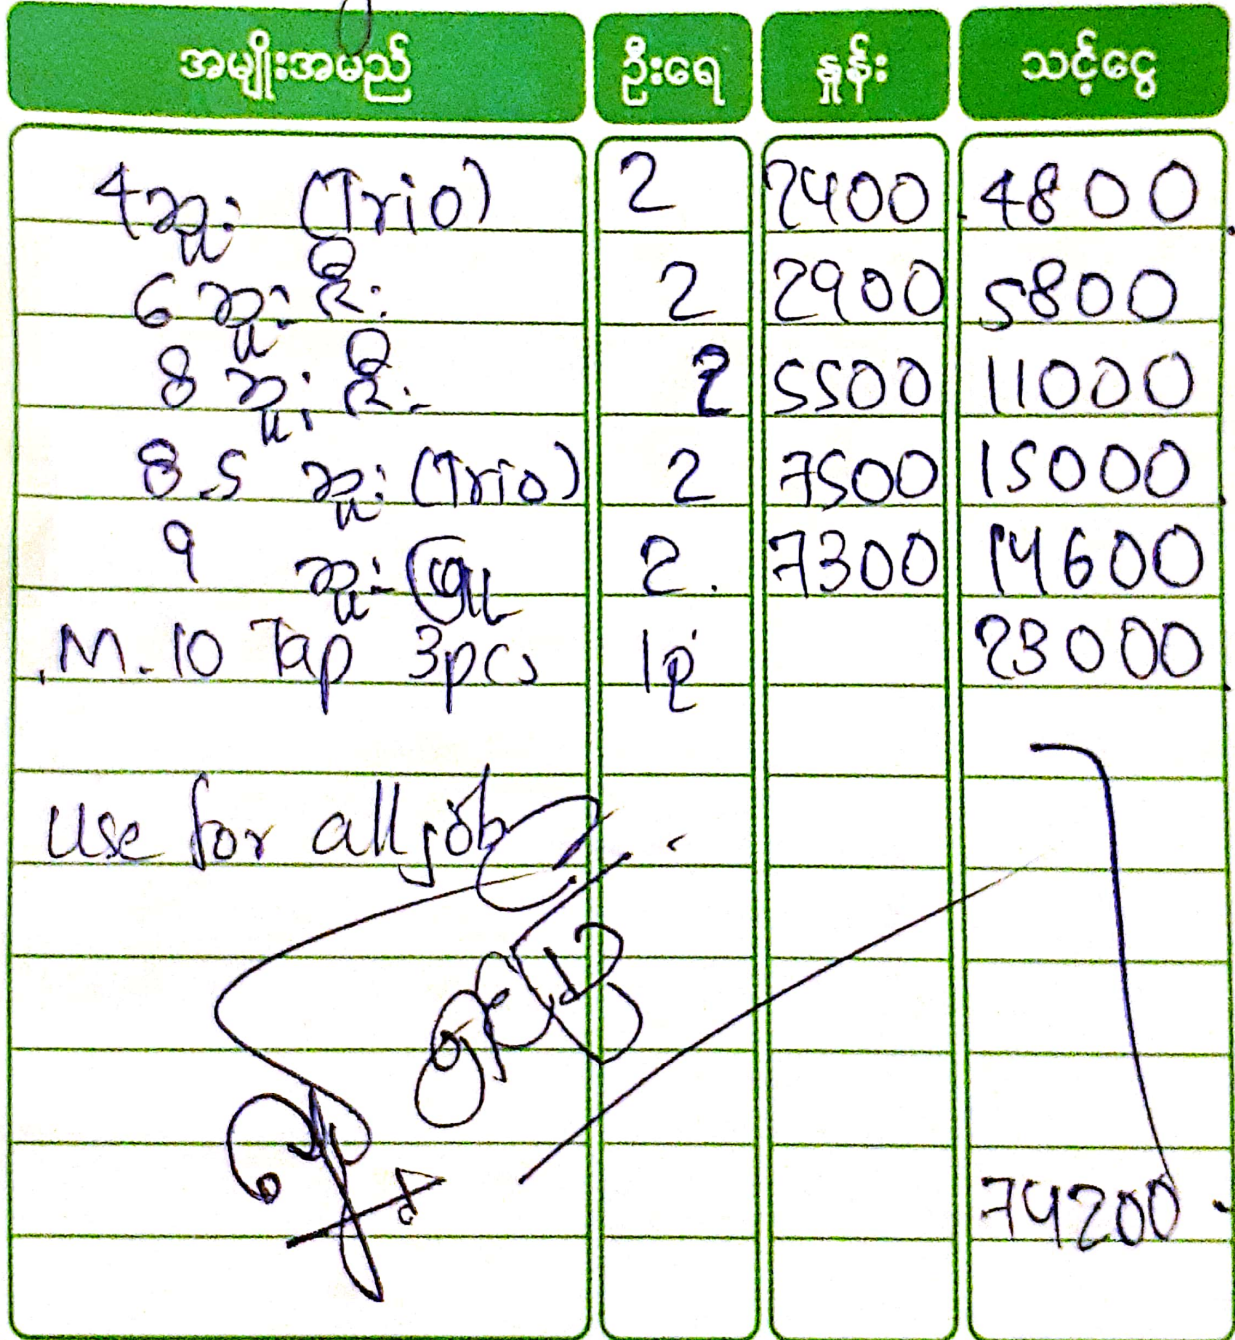 အမျိုးအမည် ဦးရေ နှုန်း သင့်ငွေ
4 ဆူး (Trio) 2 2400 4800
6 ဆူး ဒိုး 2 2900 5800
8 ဆူး ဒိုး 2 5500 11000
8.5 ဆူး (Trio) 2 7500 15000
9 ဆူး 2 7300 14600
M.10 Tap 3pcs 1 23000
Use for all job
74200